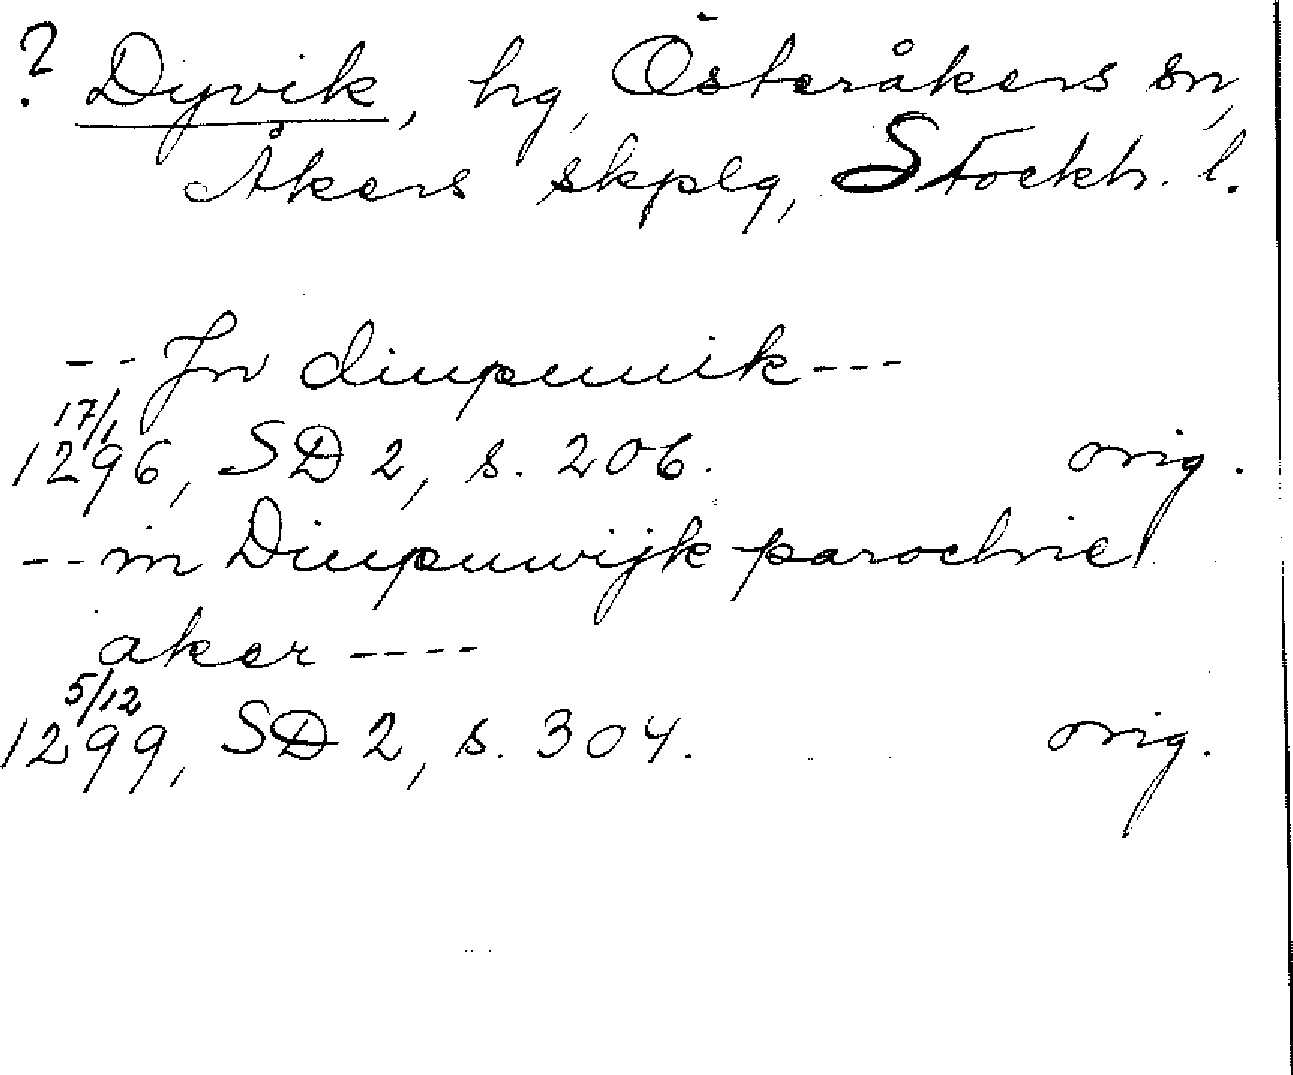 ? Dyvik, hg, Österåkers sn,
Åkers skplg, Stockh. l.
-- Jn diupuuik ---
17/1
1296, SD 2, s. 206. orig.
-- in Diupuwijk parochie
aker ----
5/12
1299, SD 2, s. 304. orig.